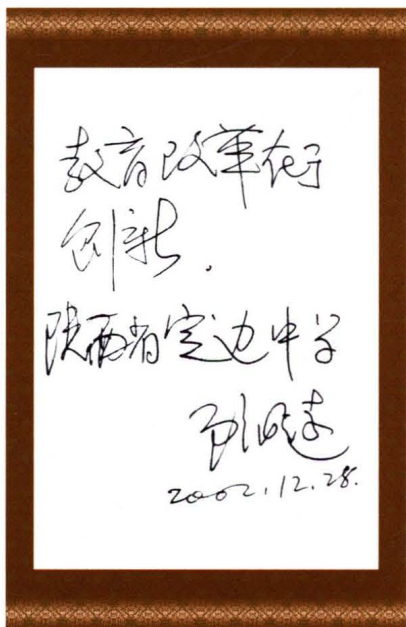 教育改革在于
创新.
陕西省定边中学
2002.12.28.